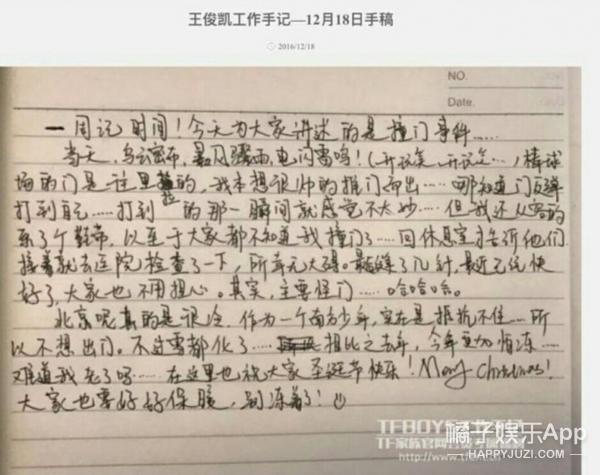 王俊凯工作手记—12月18日手稿
2016/12/18
NO.
Date.
一周记时间!今天为大家讲述的是撞门事件……
当天,乌云密布,暴风骤雨,电闪雷鸣!(开玩笑,开玩笑…,)棒球
场的门是往里拉的,我本想很帅的推门而出……哪知道门反弹
打到自己……打到的那一瞬间就感觉不太妙……但我还从容的
系了个鞋带,以至于大家都不知道我撞门了……回休息室告诉他们
接着就去医院检查了一下,所幸无大碍。缝了几针,最近已经快
好了,大家也不用担心。其实,主要怪门……哈哈哈。
北京呢真的是很冷.作为一个南方少年,实在是抵抗不住……所
以不想出门。不过雪都化了……相比之去年,今年更加怕冻……
难道我老了吗……在这里也祝大家圣诞节快乐!Merry Christmas!
大家也要好好保暖,别冻着了!
TFBOYS
TF家族官网
http://www.tfent.cn
橘子娱乐App
—HAPPYJUZI.COM—